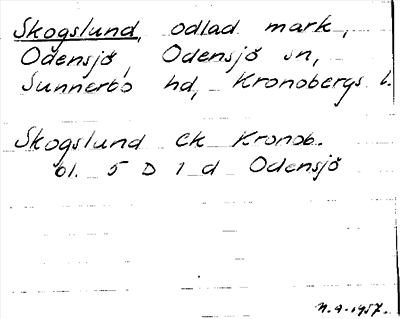 Skogslund, odlad mark,
Odensjö, Odensjö sn,
Sunnerbo hd, Kronobergs l.
Skogslund Ek Kronob.
bl. 5 D 1 d Odensjö
N.A. 1957.